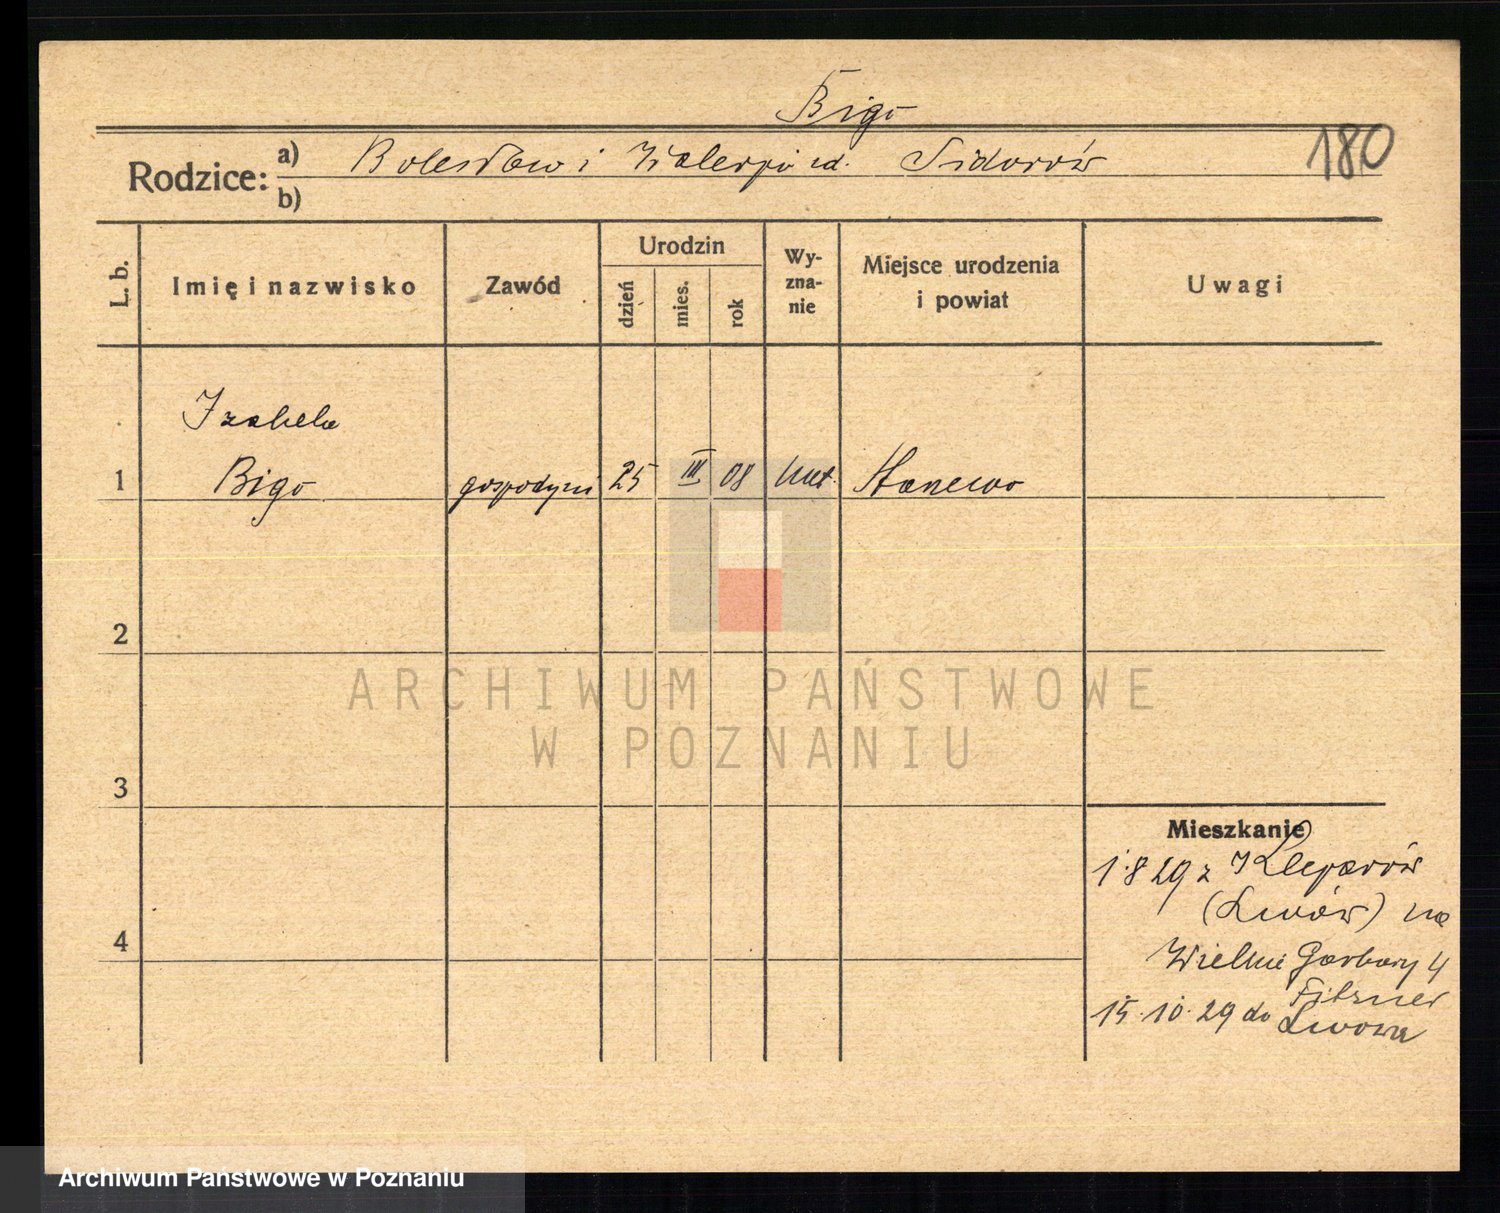 Bigo
Rodzice:
a) Bolesław i Walerja zd. Sidorów
b)
180
L. b.
Imię i nazwisko
Zawód
Urodzin
dzień
mies.
rok
Wy-
zna-
nie
Miejsce urodzenia
i powiat
Uwagi
Izabela
1 Bigo gospodyni 25 III 08 kat. Hanewo
2
3
4
ARCHIWUM PAŃSTWOWE
W POZNANIU
Mieszkanie
1.8 29 z Kleparów
(Lwów) na
Wielkie Garbary 4
Fitzner
15.10.29 do Lwowa
Archiwum Państwowe w Poznaniu